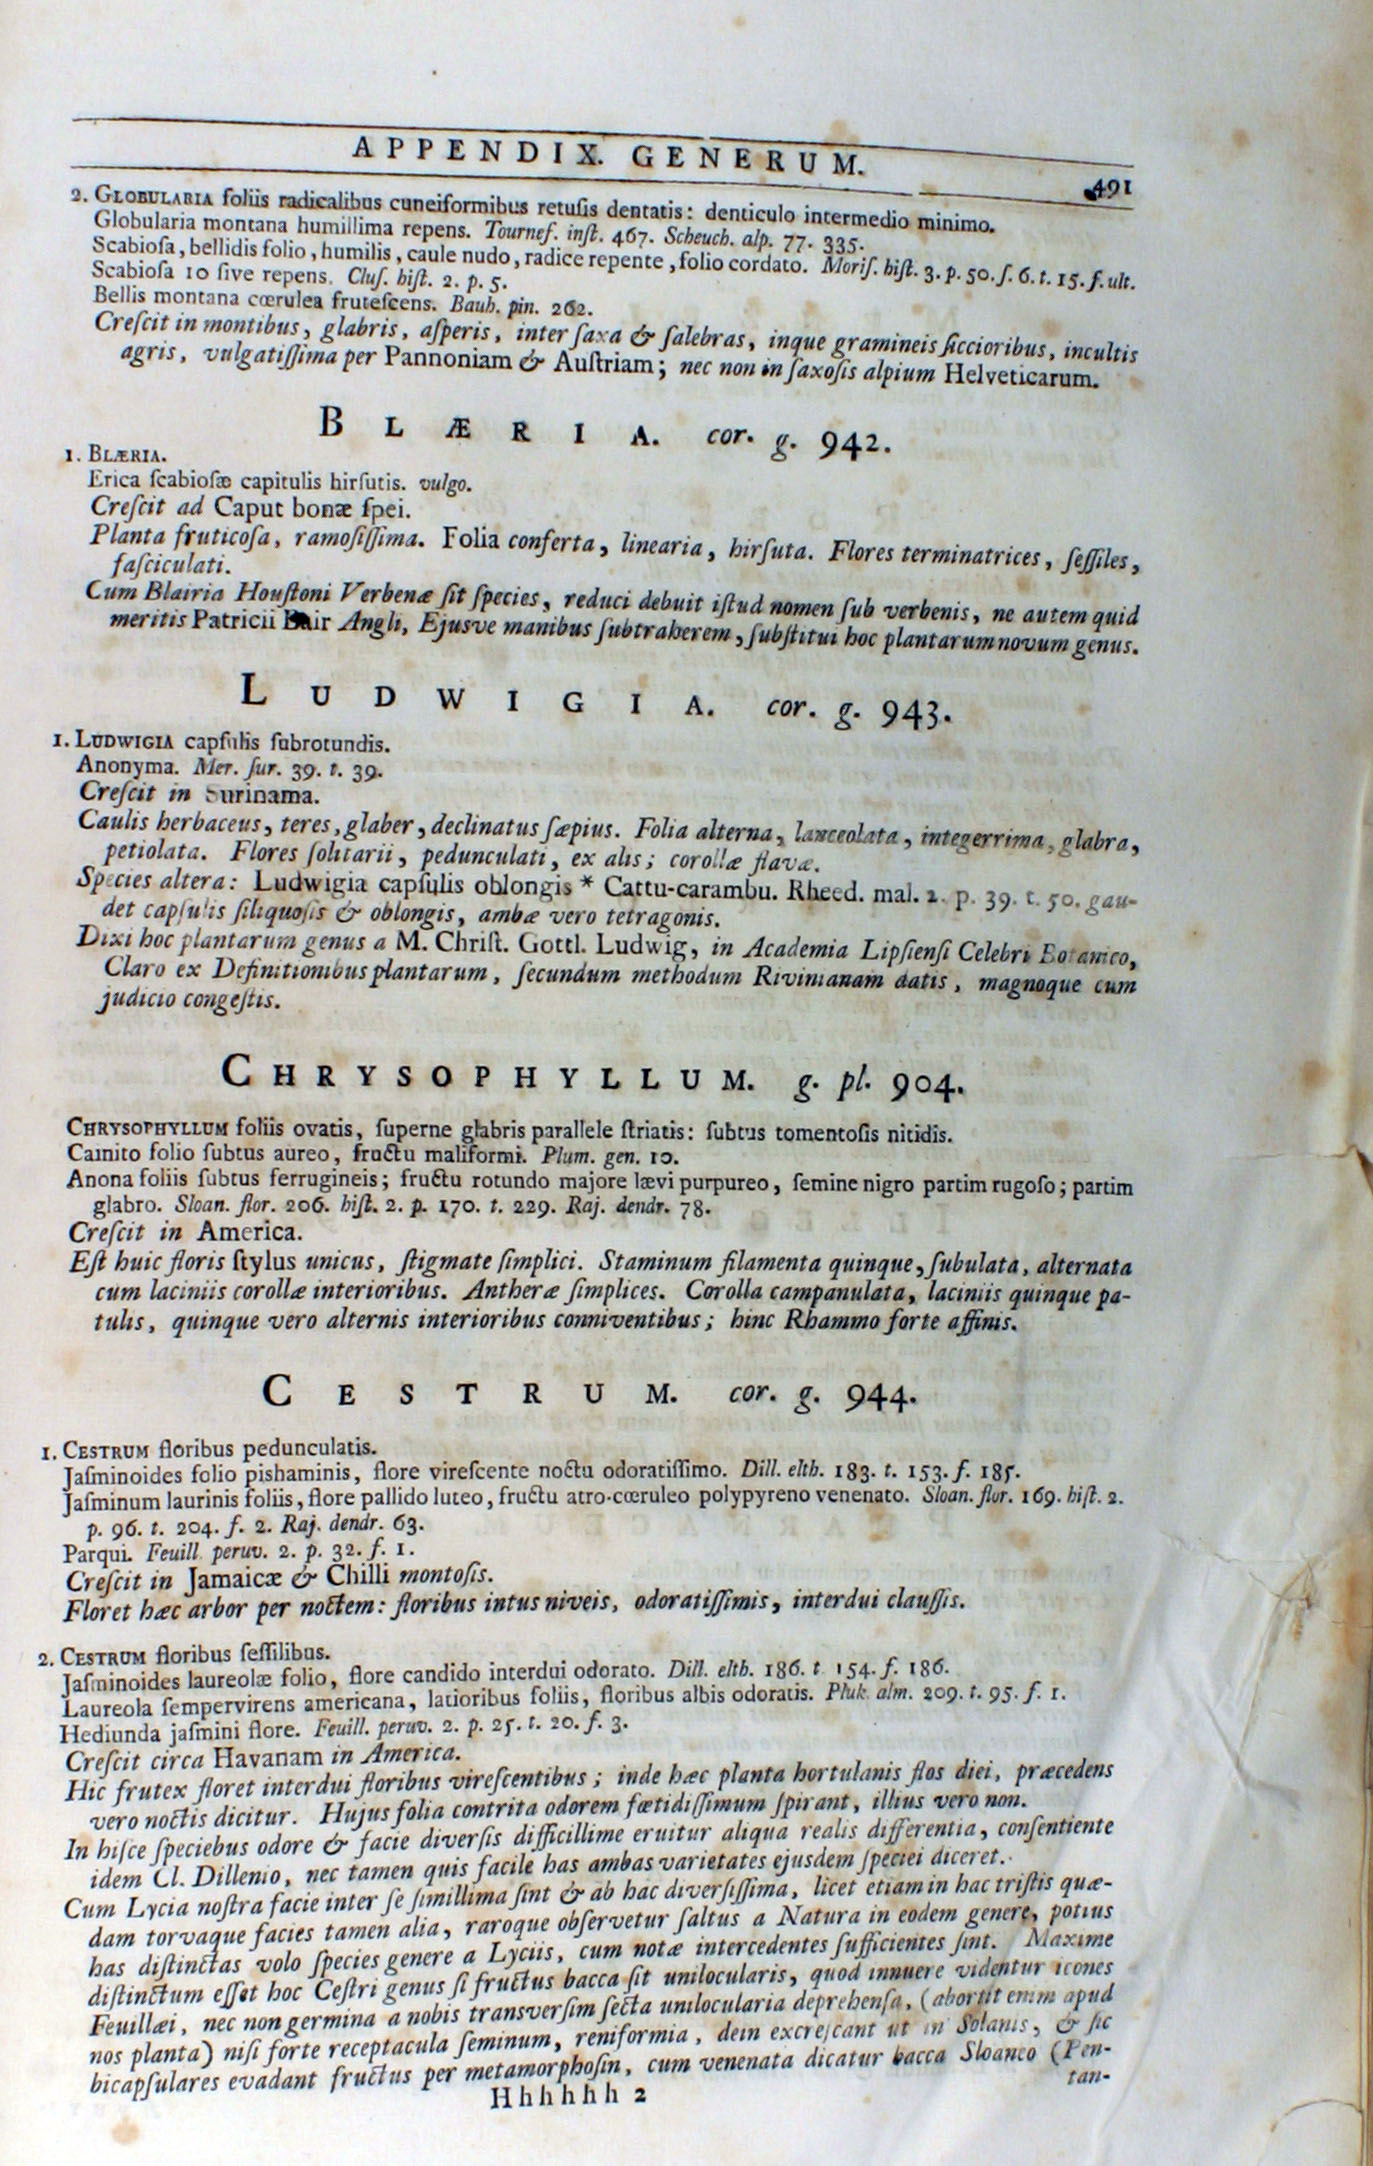 APPENDIX. GENERUM. 491
2. GLOBULARIA foliis radicalibus cuneiformibus retuſis dentatis: denticulo intermedio minimo.
Globularia montana humillima repens. Tournef. inſt. 467. Scheuch. alp. 77. 335.
Scabioſa, bellidis folio, humilis, caule nudo, radice repente, folio cordato. Moriſ. hiſt. 3. p. 50. ſ. 6. t. 15. f. ult.
Scabioſa 10 ſive repens. Cluſ. hiſt. 2. p. 5.
Bellis montana cœrulea fruteſcens. Bauh. pin. 262.
Creſcit in montibus, glabris, aſperis, inter ſaxa & ſalebras, inque gramineis ſiccioribus, incultis
agris, vulgatiſſima per Pannoniam & Auſtriam; nec non in ſaxoſis alpium Helveticarum.
BLÆRIA. cor. g. 942.
1. BLÆRIA.
Erica ſcabioſæ capitulis hirſutis. vulgo.
Creſcit ad Caput bonæ ſpei.
Planta fruticoſa, ramoſiſſima. Folia conferta, linearia, hirſuta. Flores terminatrices, ſeſſiles,
faſciculati.
Cum Blairia Houſtoni Verbenæ ſit ſpecies, reduci debuit iſtud nomen ſub verbenis, ne autem quid
meritis Patricii Blair Angli, Ejusve manibus ſubtraherem, ſubſtitui hoc plantarum novum genus.
LUDWIGIA. cor. g. 943.
1. LUDWIGIA capſulis ſubrotundis.
Anonyma. Mer. ſur. 39. t. 39.
Creſcit in Surinama.
Caulis herbaceus, teres, glaber, declinatus ſæpius. Folia alterna, lanceolata, integerrima, glabra,
petiolata. Flores ſolitarii, pedunculati, ex alis; corollæ flavæ.
Species altera: Ludwigia capſulis oblongis * Cattu-carambu. Rheed. mal. 2. p. 39. t. 50. gau-
det capſulis ſiliquoſis & oblongis, ambæ vero tetragonis.
Dixi hoc plantarum genus a M. Chriſt. Gottl. Ludwig, in Academia Lipſienſi Celebri Botanico,
Claro ex Definitionibus plantarum, ſecundum methodum Rivinianam datis, magnoque cum
judicio congeſtis.
CHRYSOPHYLLUM. g. pl. 904.
CHRYSOPHYLLUM foliis ovatis, ſuperne glabris parallele ſtriatis: ſubtus tomentoſis nitidis.
Cainito folio ſubtus aureo, fructu maliformi. Plum. gen. 10.
Anona foliis ſubtus ferrugineis; fructu rotundo majore lævi purpureo, ſemine nigro partim rugoſo; partim
glabro. Sloan. flor. 206. hiſt. 2. p. 170. t. 229. Raj. dendr. 78.
Creſcit in America.
Eſt huic floris ſtylus unicus, ſtigmate ſimplici. Staminum filamenta quinque, ſubulata, alternata
cum laciniis corollæ interioribus. Antheræ ſimplices. Corolla campanulata, laciniis quinque pa-
tulis, quinque vero alternis interioribus conniventibus; hinc Rhammo forte affinis.
CESTRUM. cor. g. 944.
1. CESTRUM floribus pedunculatis.
Jaſminoides folio pishaminis, flore vireſcente noctu odoratiſſimo. Dill. elth. 183. t. 153. f. 185.
Jaſminum laurinis foliis, flore pallido luteo, fructu atro-cœruleo polypyreno venenato. Sloan. flor. 169. hiſt. 2.
p. 96. t. 204. f. 2. Raj. dendr. 63.
Parqui. Feuill. peruv. 2. p. 32. f. 1.
Creſcit in Jamaicæ & Chilli montoſis.
Floret hæc arbor per noctem: floribus intus niveis, odoratiſſimis, interdui clauſſis.
2. CESTRUM floribus ſeſſilibus.
Jaſminoides laureolæ folio, flore candido interdui odorato. Dill. elth. 186. t. 154. f. 186.
Laureola ſempervirens americana, latioribus foliis, floribus albis odoratis. Pluk. alm. 209. t. 95. f. 1.
Hediunda jaſmini flore. Feuill. peruv. 2. p. 25. t. 20. f. 3.
Creſcit circa Havanam in America.
Hic frutex floret interdui floribus vireſcentibus; inde hæc planta hortulanis flos diei, præcedens
vero noctis dicitur. Hujus folia contrita odorem fœtidiſſimum ſpirant, illius vero non.
In hiſce ſpeciebus odore & facie diverſis difficillime eruitur aliqua realis differentia, conſentiente
idem Cl. Dillenio, nec tamen quis facile has ambas varietates ejusdem ſpeciei diceret.
Cum Lycia noſtra facie inter ſe ſimillima ſint & ab hac diverſiſſima, licet etiam in hac triſtis quæ-
dam torvaque facies tamen alia, raroque obſervetur ſaltus a Natura in eodem genere, potius
has diſtinctas volo ſpecies genere a Lyciis, cum notæ intercedentes ſufficientes ſint. Maxime
diſtinctum eſſet hoc Ceſtri genus ſi fructus bacca ſit unilocularis, quod innuere videntur icones
Feuillæi, nec non germina a nobis transverſim ſecta unilocularia deprehenſa, (abortit enim apud
nos planta) niſi forte receptacula ſeminum, reniformia, dein excreſcant ut in Solanis, & ſic
bicapſulares evadant fructus per metamorphoſin, cum venenata dicatur bacca Sloaneo (Pen-
Hhhhhh 2 tan-